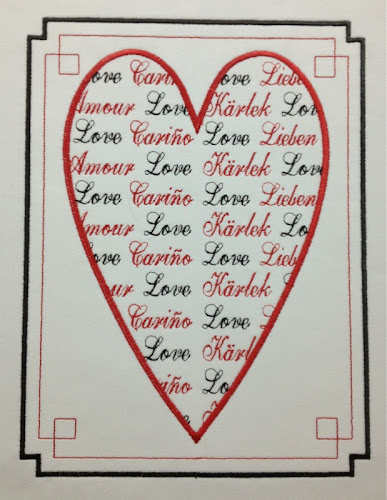 ove Cariñ ove Lieben
Amour Love Kärlek Lov
Love Cariño Love Lieben
Amour Love Kärlek Love
Love Cariño Love Lieben
Amour Love Kärlek Lo
ove Cariño Love Lieb
our Love Kärlek L
Cariño Love L
Love Kärl
iño Lo
K